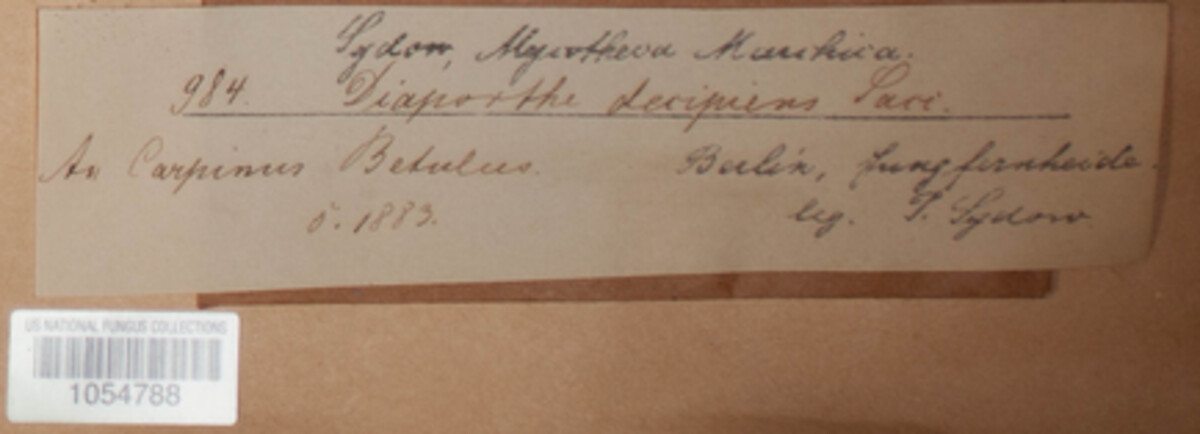 Sydow, Mycotheca Marchica.
984. Diaporthe decipiens Sacc.
An Carpinus Betulus. Berlin, Jungfernheide.
5. 1883. leg. P. Sydow
US NATIONAL FUNGUS COLLECTIONS
1054788